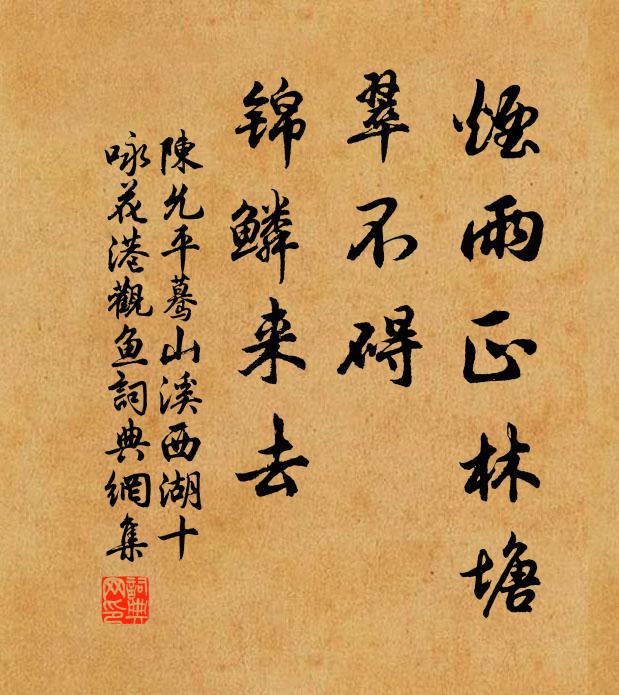 煙雨正林塘
翠不碍
锦鳞来去
陳允平蓦山溪西湖十
咏花港觀鱼詞典網集
詞典
网印